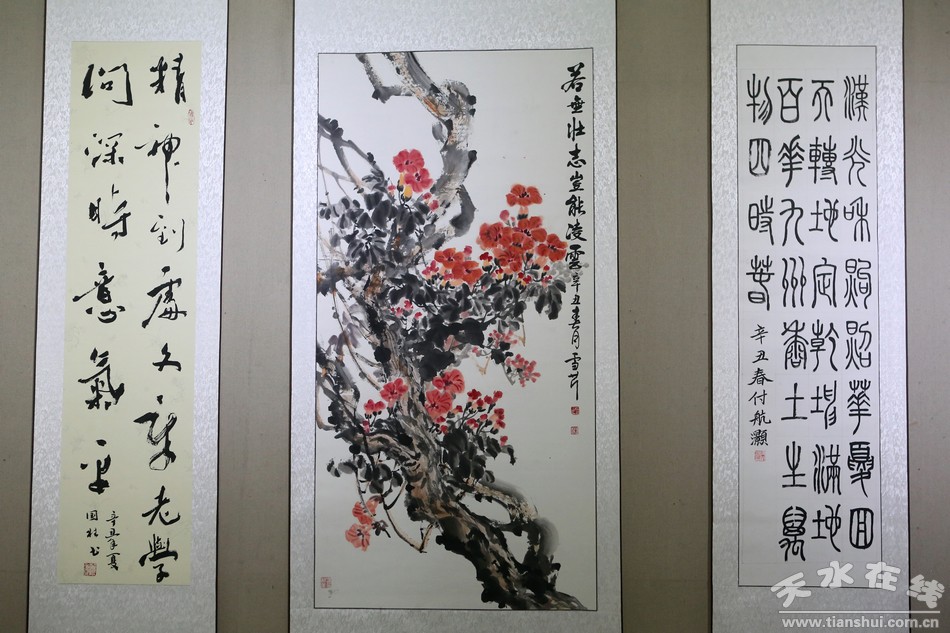 精神到處文章老學
問深時意氣平
辛丑年夏
國柱书
若無壯志豈能凌雲 辛丑春月雪芹
漢光和煦照華夏回
天轉地定乾坤滿地
百華九州香土生萬
物四時春 辛丑春付航灝
天水在线
www.tianshui.com.cn